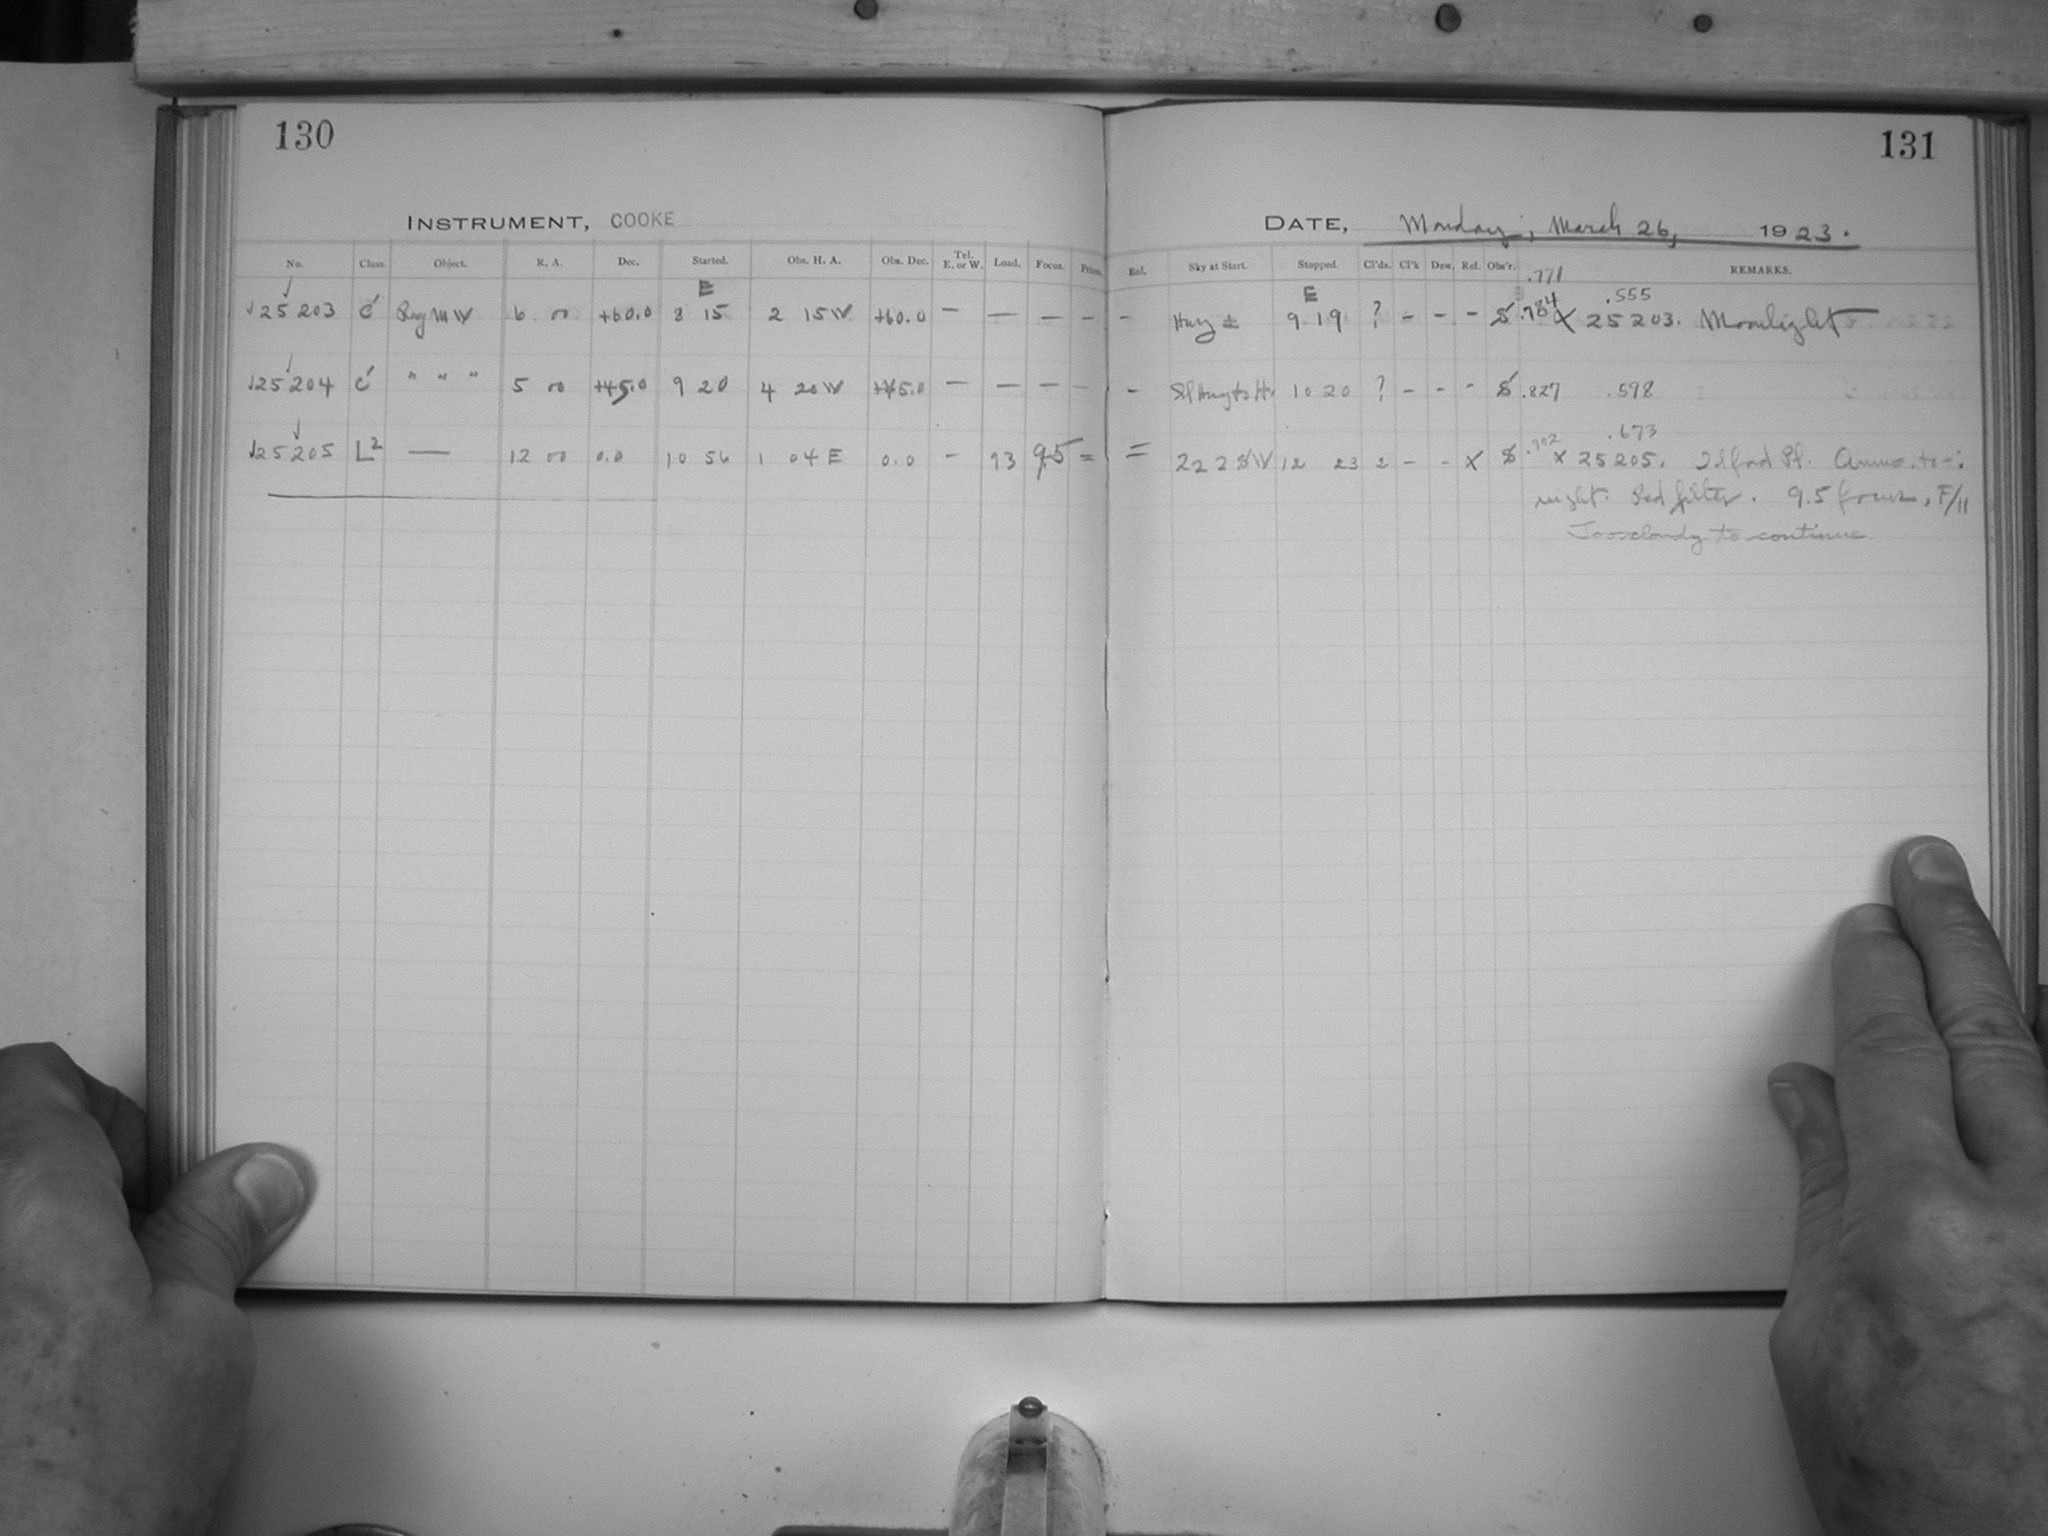 130
131
INSTRUMENT, COOKE
DATE, Monday, March 26, 1923.
No. Class. Object. R. A. Dec. Started. Obs. H. A. Obs. Dec. Tel. E. or W. Load. Focus. Prism.
Exl. Sky at Start. Stopped. Cl'ds. Cl'k Dew. Ref. Obs'r. REMARKS.
.771
E E .555
25203 C' Reg MW 6 00 +60.0 8 15 2 15W +60.0 — — — — - Hazy ± 9 19 ? - - - S .784 X 25203. Moonlight
25204 C' " " " 5 00 +45.0 9 20 4 20W +45.0 — — — — - 10 20 ? - - - S .827 .598
.702 .673
25205 L2 — 12 00 0.0 10 56 1 04E 0.0 - 93 9.5 = = 12 23 2 - - X S X 25205. Ilford Pl. Ammo. to-
night. Red filter. 9.5 focus, F/11
Too cloudy to continue.